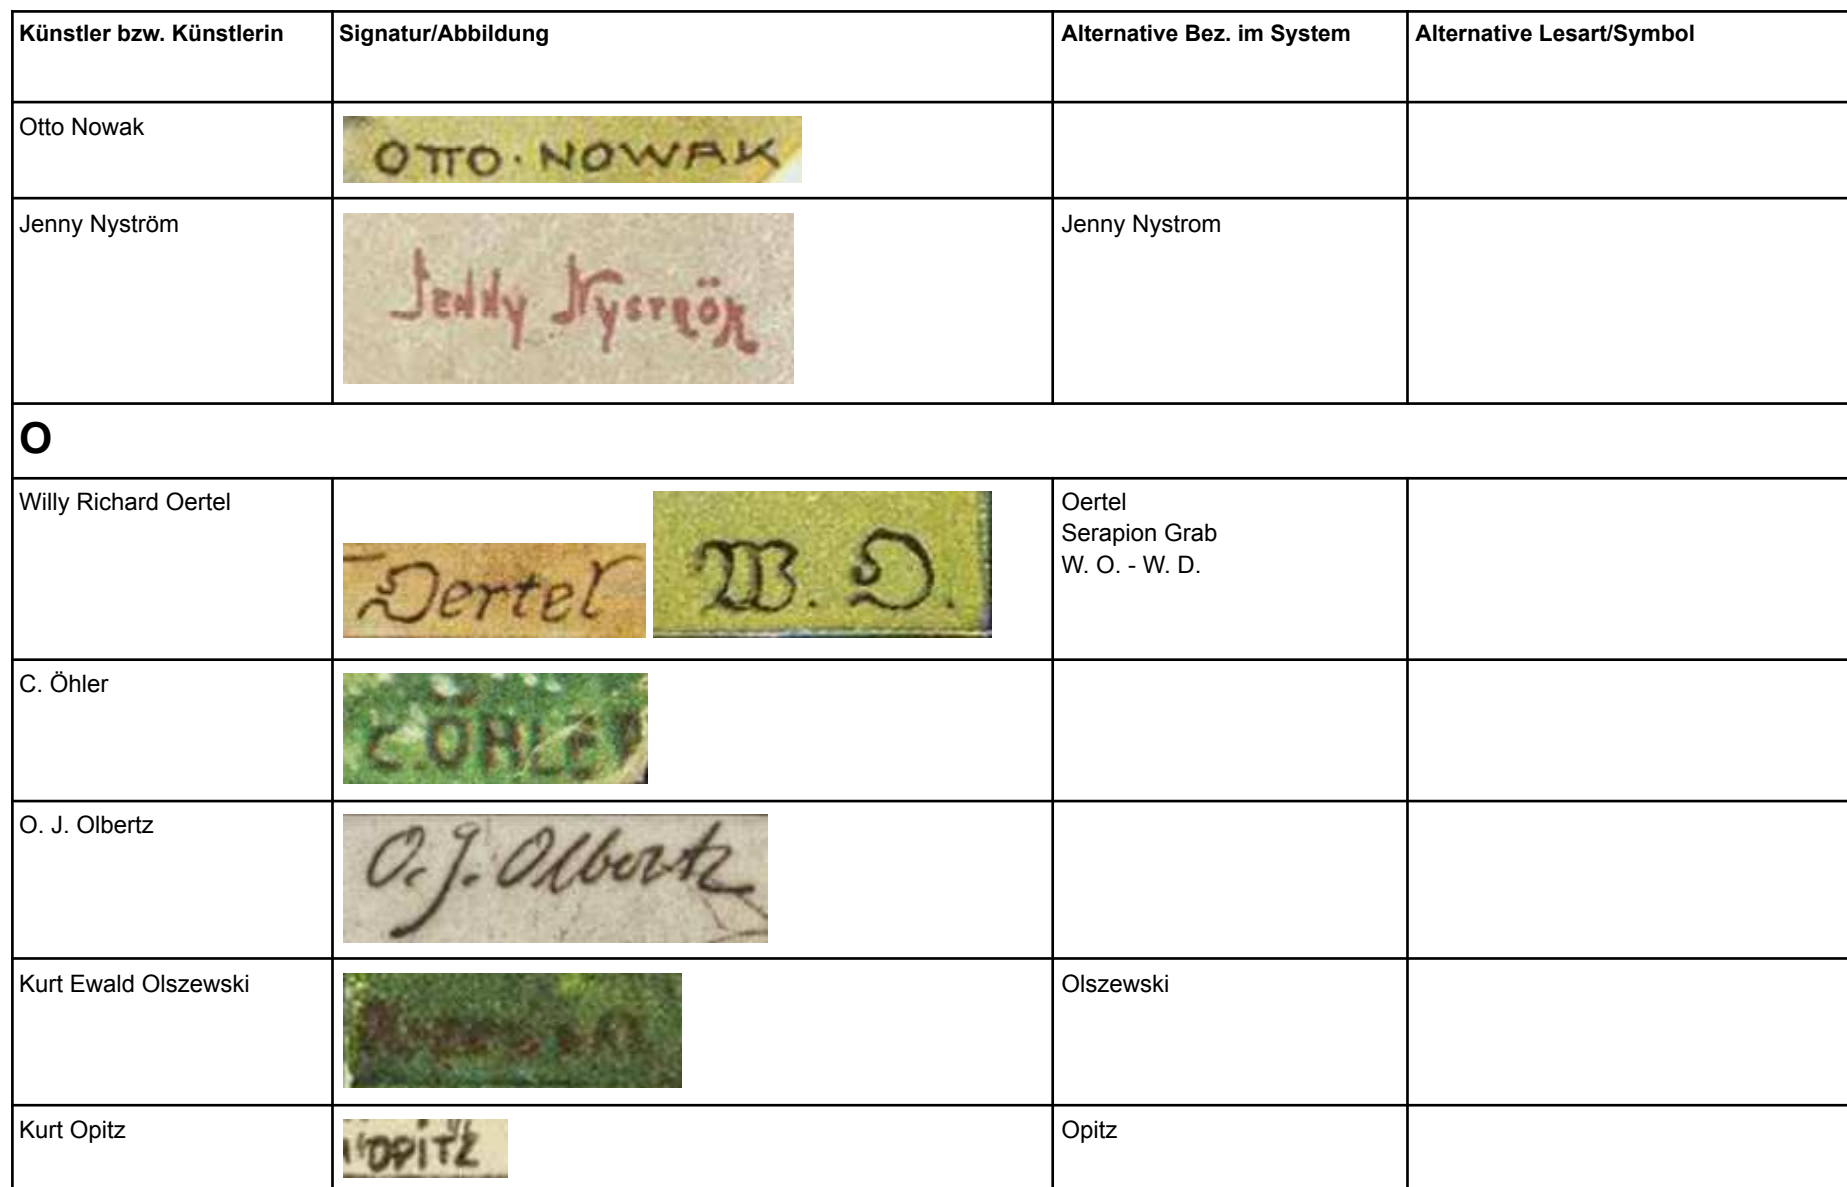 Künstler bzw. Künstlerin Signatur/Abbildung Alternative Bez. im System Alternative Lesart/Symbol
Otto Nowak OTTO · NOWAK
Jenny Nyström Jenny Nyström Jenny Nystrom
O
Willy Richard Oertel Oertel W. O. Oertel
Serapion Grab
W. O. - W. D.
C. Öhler C. ÖHLER
O. J. Olbertz O. J. Olbertz
Kurt Ewald Olszewski Olszewski
Kurt Opitz OPITZ Opitz